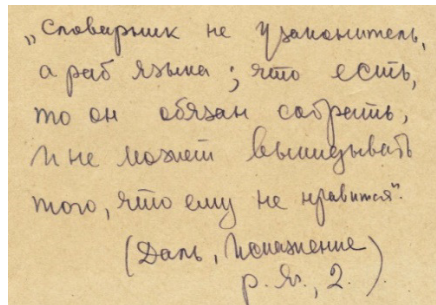 „Словарник не узаконитель,
а раб языка; что есть,
то он обязан собрать,
и не может выкидывать
того, что ему не нравится".
(Даль, Искажение
р. яз., 2.)